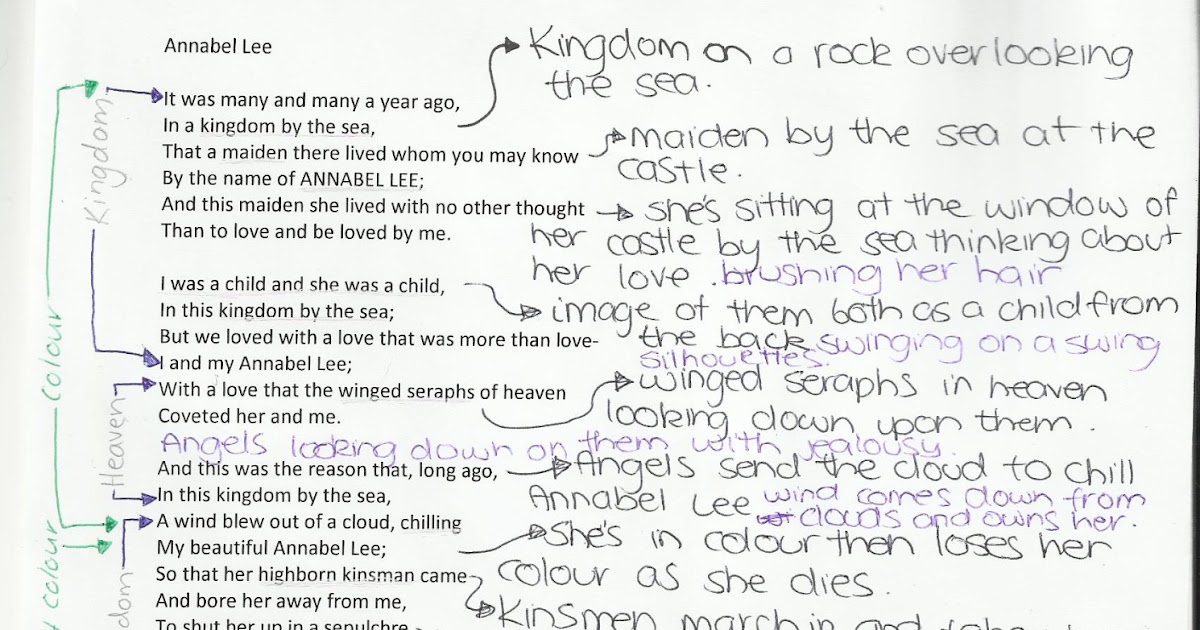 Annabel Lee
Kingdom on a rock overlooking
the sea.
It was many and many a year ago,
In a kingdom by the sea,
That a maiden there lived whom you may know
maiden by the sea at the
castle.
By the name of ANNABEL LEE;
And this maiden she lived with no other thought
she's sitting at the window of
Than to love and be loved by me.
her castle by the sea thinking about
her love .brushing her hair
I was a child and she was a child,
In this kingdom by the sea;
image of them both as a child from
But we loved with a love that was more than love-
the back swinging on a swing
silhouettes.
I and my Annabel Lee;
With a love that the winged seraphs of heaven
winged seraphs in heaven
Coveted her and me.
looking down upon them.
Angels looking down on them with jealousy.
And this was the reason that, long ago,
Angels send the cloud to chill
In this kingdom by the sea,
Annabel Lee wind comes down from
clouds and owns her.
A wind blew out of a cloud, chilling
My beautiful Annabel Lee;
she's in colour then loses her
So that her highborn kinsman came
colour as she dies.
And bore her away from me,
Kinsmen march in and
To shut her up in a sepulchre
Kingdom
colour
Heaven
colour
dom